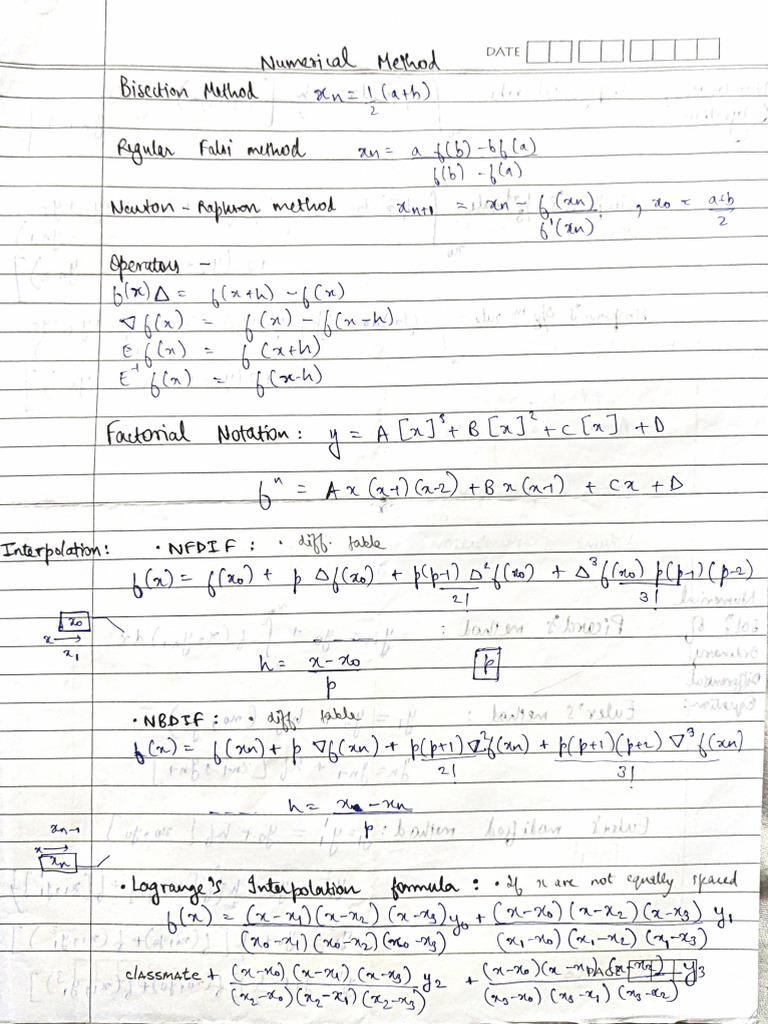 DATE
Numerical Method
Bisection Method xn = 1/2 (a+b)
Regular Falsi method xn = a f(b) - b f(a) / f(b) - f(a)
Newton - Raphson method xn+1 = xn - f(xn) / f'(xn) , x0 = a+b / 2
Operators -
f(x) Δ = f(x+h) - f(x)
∇ f(x) = f(x) - f(x-h)
E f(x) = f(x+h)
E⁻¹ f(x) = f(x-h)
Factorial Notation : y = A [x]³ + B [x]² + C [x] + D
fⁿ = A x (x-1) (x-2) + B x (x-1) + C x + D
Interpolation : • NFDIF : • diff. table
f(x) = f(x0) + p Δf(x0) + p(p-1) Δ² f(x0) / 2! + Δ³ f(x0) p(p-1)(p-2) / 3!
x0
x → x1
h = x - x0 / p
p
• NBDIF : • diff. table
f(x) = f(xn) + p ∇f(xn) + p(p+1) ∇² f(xn) / 2! + p(p+1)(p+2) ∇³ f(xn) / 3!
h = x - xn / p
xn-1
x → xn
• Lagrange's Interpolation formula : • If x are not equally spaced
f(x) = (x-x1) (x-x2) (x-x3) y0 / (x0-x1) (x0-x2) (x0-x3) + (x-x0) (x-x2) (x-x3) y1 / (x1-x0) (x1-x2) (x1-x3)
classmate + (x-x0) (x-x1) (x-x3) y2 / (x2-x0) (x2-x1) (x2-x3) + (x-x0) (x-x1) (x-x2) y3 / (x3-x0) (x3-x1) (x3-x2)
PAGE